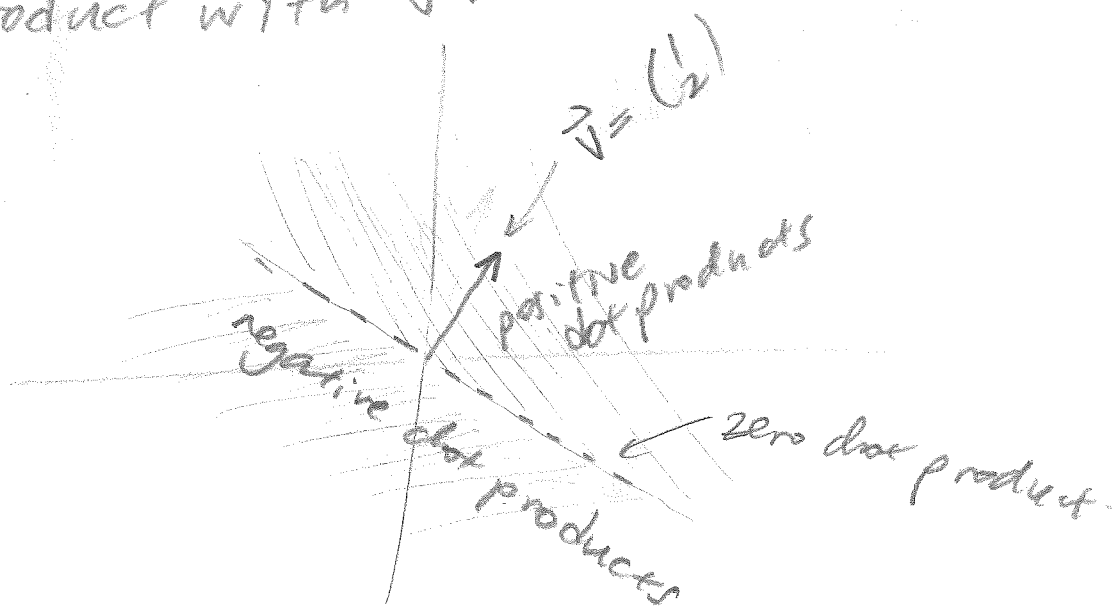 oduct with v
v = (1 2)
positive
dot products
negative dot products
zero dot product.